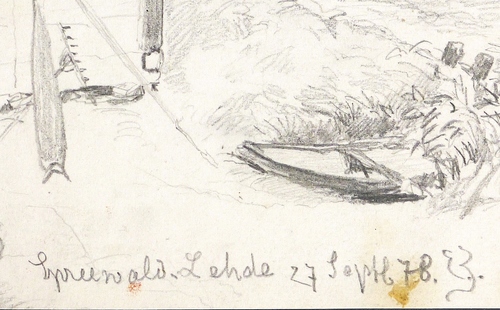 Spreewald. Lehde 27 Septb 78.